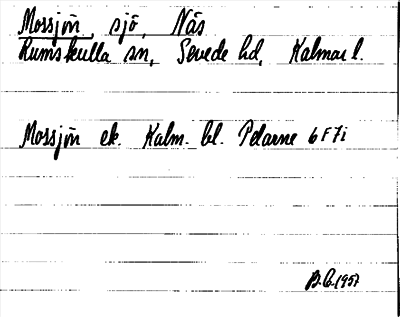 Mossjön, sjö, Näs
Rumskulla sn, Sevede hd, Kalmar l.
Mossjön ek. Kalm. bl. Pelarne 6F7i
B.G.1957